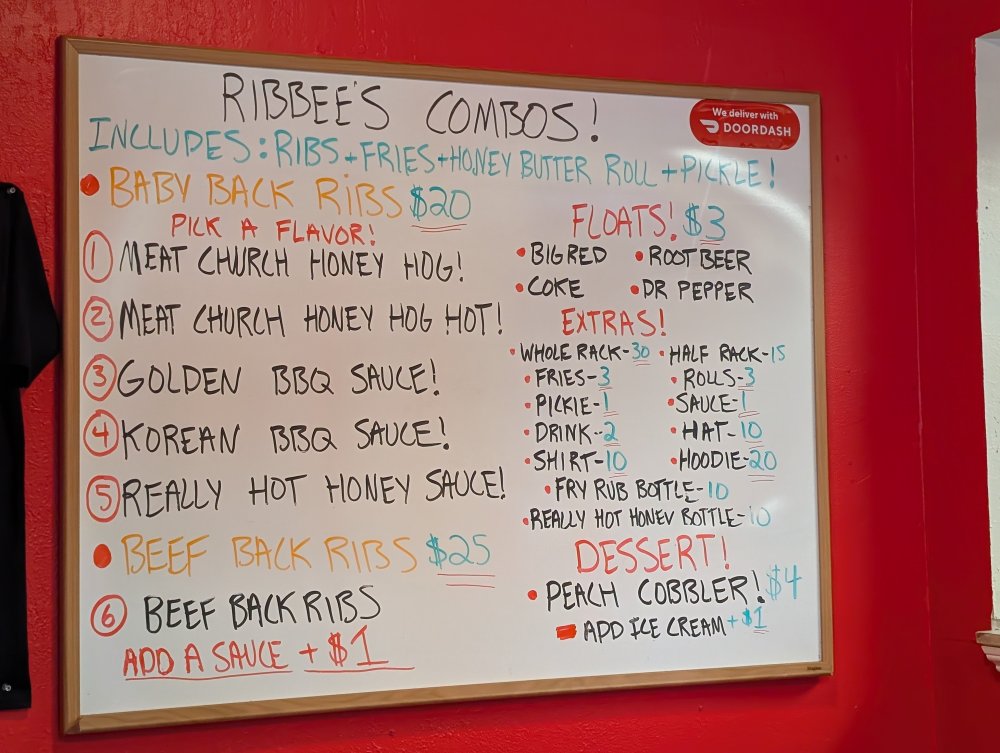 RIBBEE'S COMBOS!
We deliver with
DOORDASH
INCLUDES: RIBS + FRIES + HONEY BUTTER ROLL + PICKLE!
• BABY BACK RIBS $20
PICK A FLAVOR!
1 MEAT CHURCH HONEY HOG!
2 MEAT CHURCH HONEY HOG HOT!
3 GOLDEN BBQ SAUCE!
4 KOREAN BBQ SAUCE!
5 REALLY HOT HONEY SAUCE!
• BEEF BACK RIBS $25
6 BEEF BACK RIBS
ADD A SAUCE + $1
FLOATS! $3
• BIG RED • ROOT BEER
• COKE • DR PEPPER
EXTRAS!
• WHOLE RACK-30 • HALF RACK-15
• FRIES-3 • ROLLS-3
• PICKIE-1 • SAUCE-1
• DRINK-2 • HAT-10
• SHIRT-10 • HOODIE-20
• FRY RUB BOTTLE-10
• REALLY HOT HONEY BOTTLE-10
DESSERT!
• PEACH COBBLER! $4
ADD ICE CREAM + $1